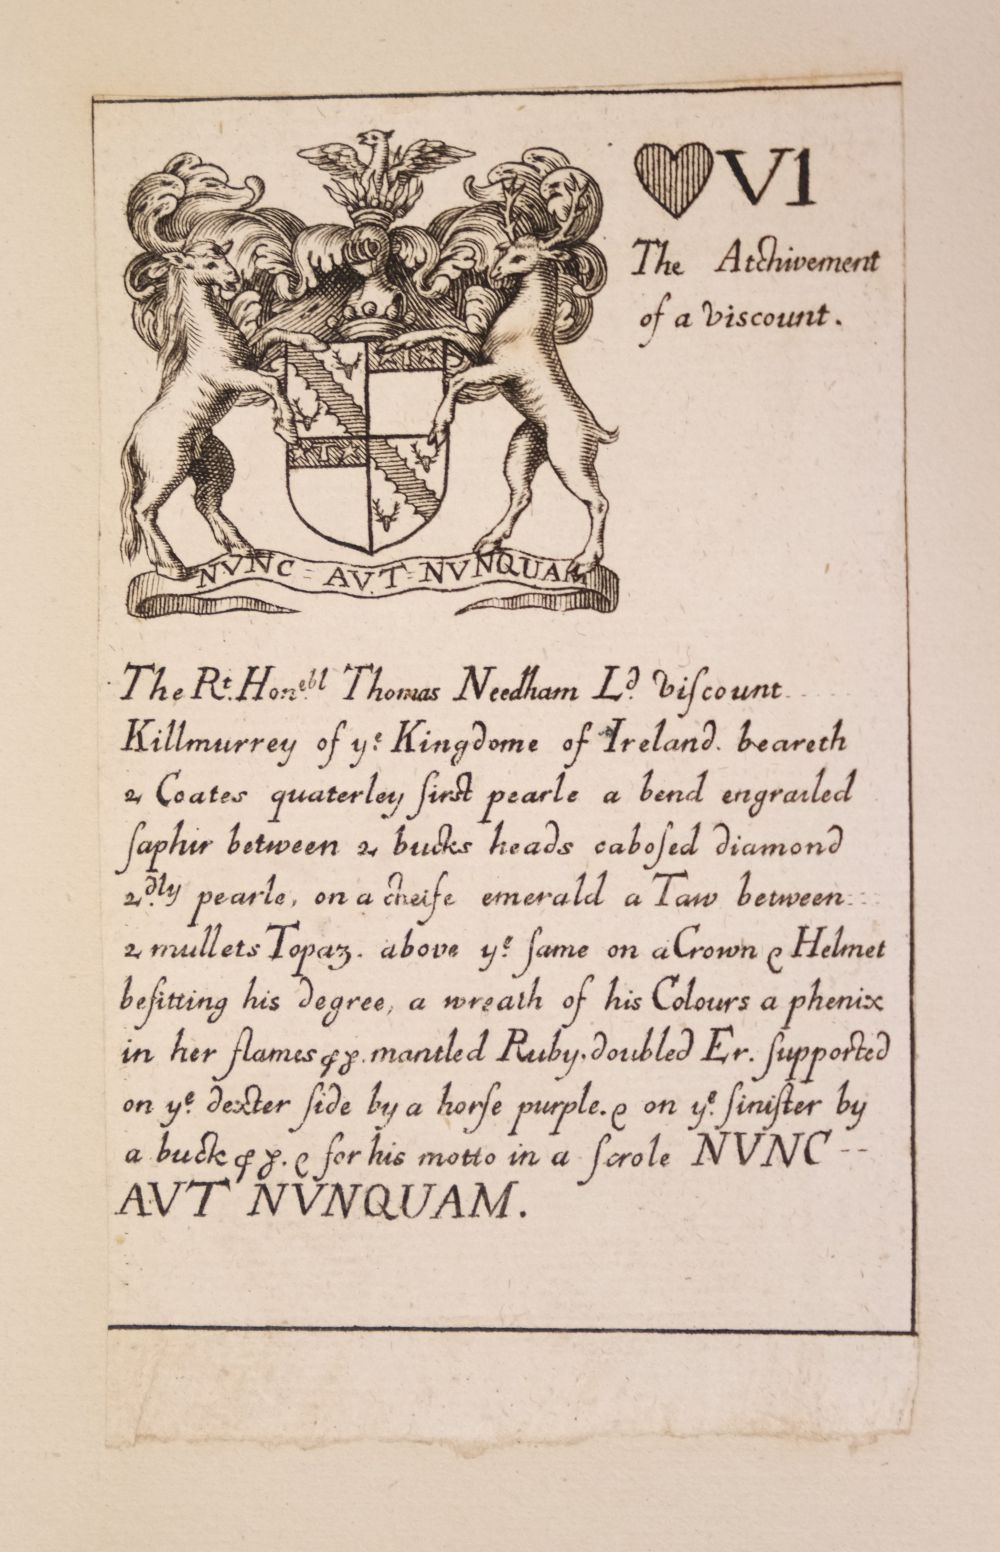 VI
The Atchivement
of a Viscount.
NVNC = AVT = NVNQUAM
The Rt. Honebl Thomas Needham Ld. Viſcount
Killmurrey of ye Kingdome of Ireland. beareth
2 Coates quaterley firſt pearle a bend engrailed
ſaphir between 2 bucks heads caboſed diamond
2dly pearle, on a cheife emerald a Taw between
2 mullets Topaz. above ye ſame on a Crown & Helmet
beſitting his degree, a wreath of his Colours a phenix
in her flames mantled Ruby, doubled Er. ſupported
on ye dexter ſide by a horſe purple. & on ye ſiniſter by
a buck & for his motto in a ſcrole NVNC --
AVT NVNQUAM.